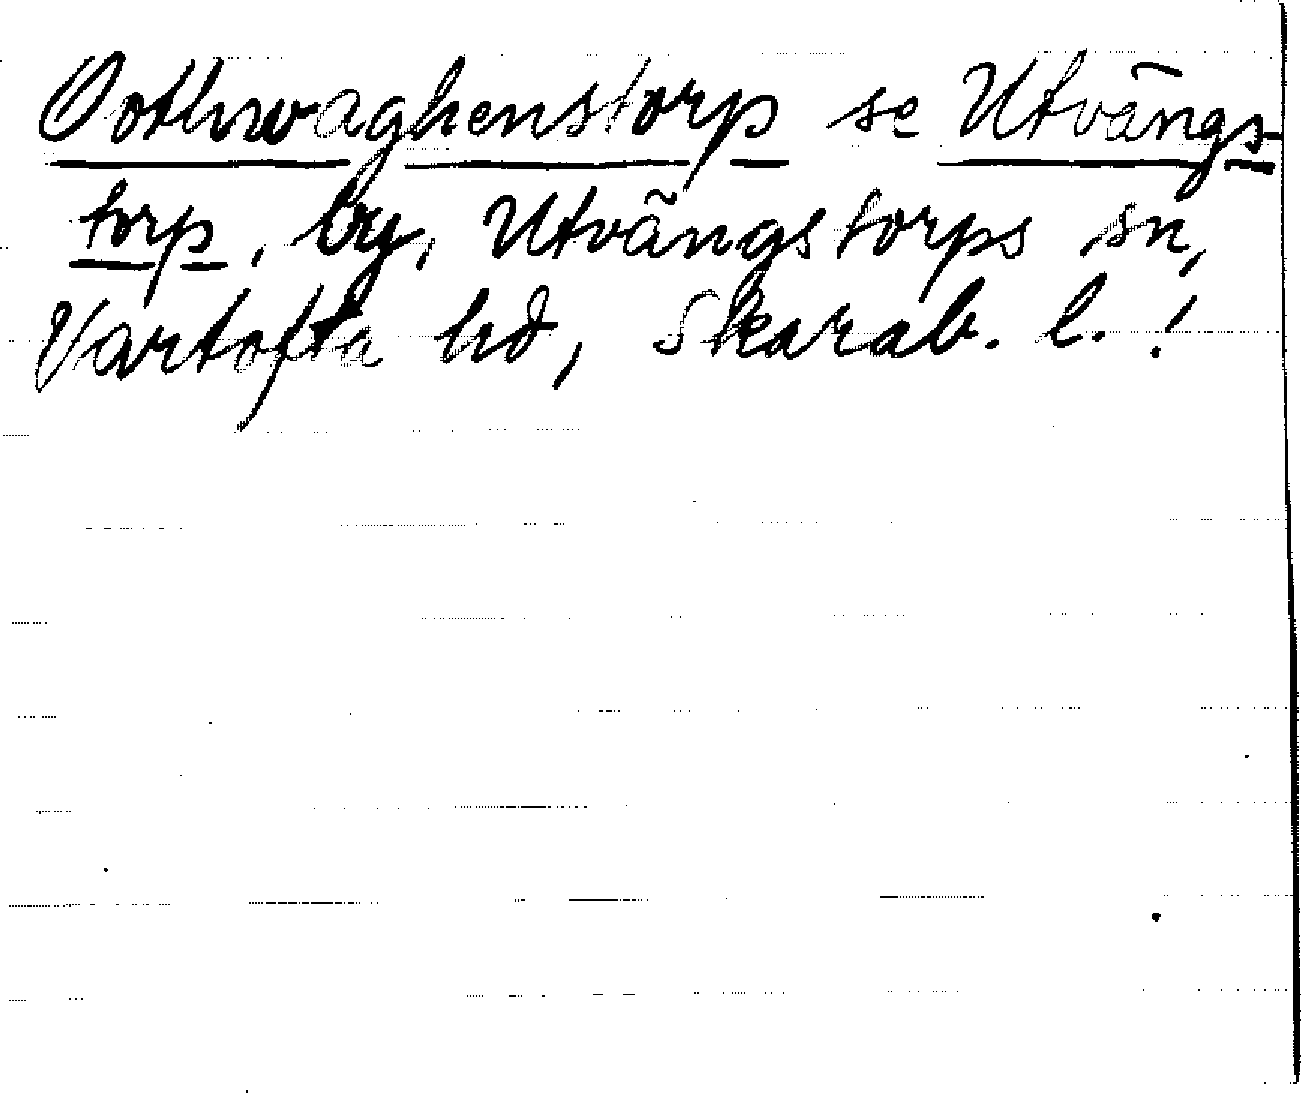 Oothwaghenstorp se Utvängs-
torp, by, Utvängstorps sn,
Vartofta hd, Skarab. l.!